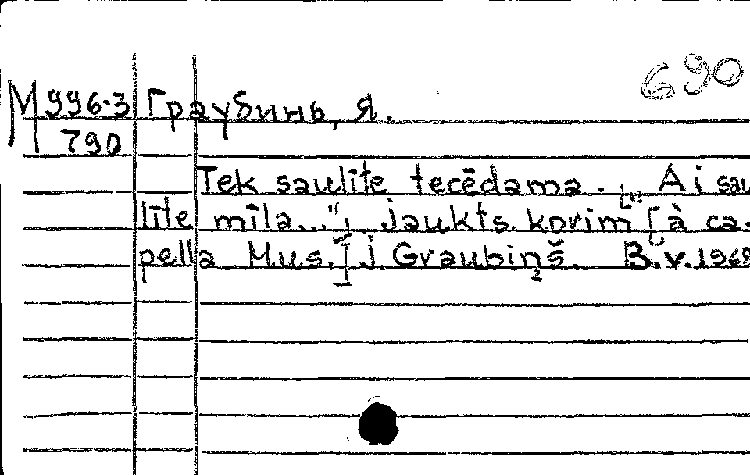 690
М 996-3 Граубинь, Я.
790
Tek saulīte tecēdama. „Ai sau
līte mīla...", jaukts korim [à ca-
pella Mus.] J. Graubiņš. B.v. 1968